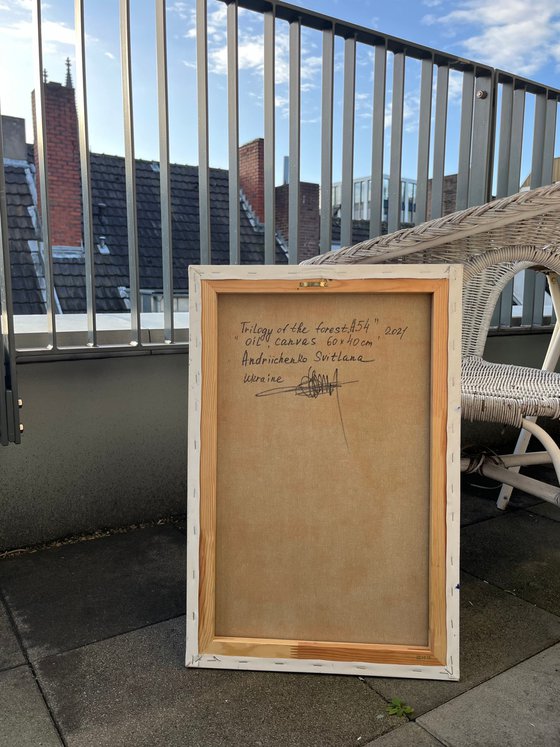 "Trilogy of the forest A54" 2021
oil, canvas 60x40cm
Andriichenko Svitlana
Ukraine